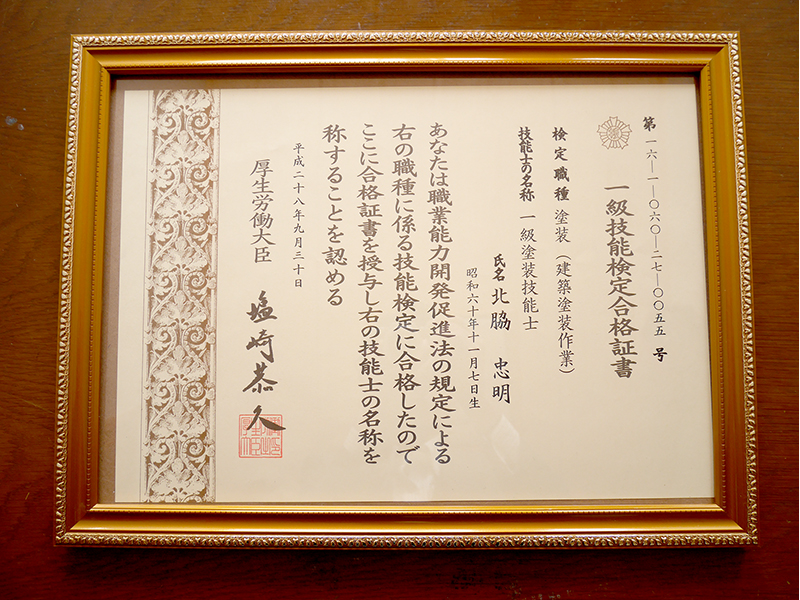 第一六―一―〇六〇―二七―〇〇五五号
一級技能検定合格証書
検定職種 塗装（建築塗装作業）
技能士の名称 一級塗装技能士
氏名 北脇 忠明
昭和六十年十一月七日生
あなたは職業能力開発促進法の規定による
右の職種に係る技能検定に合格したので
ここに合格証書を授与し右の技能士の名称を
称することを認める
平成二十八年九月三十日
厚生労働大臣 塩崎恭久